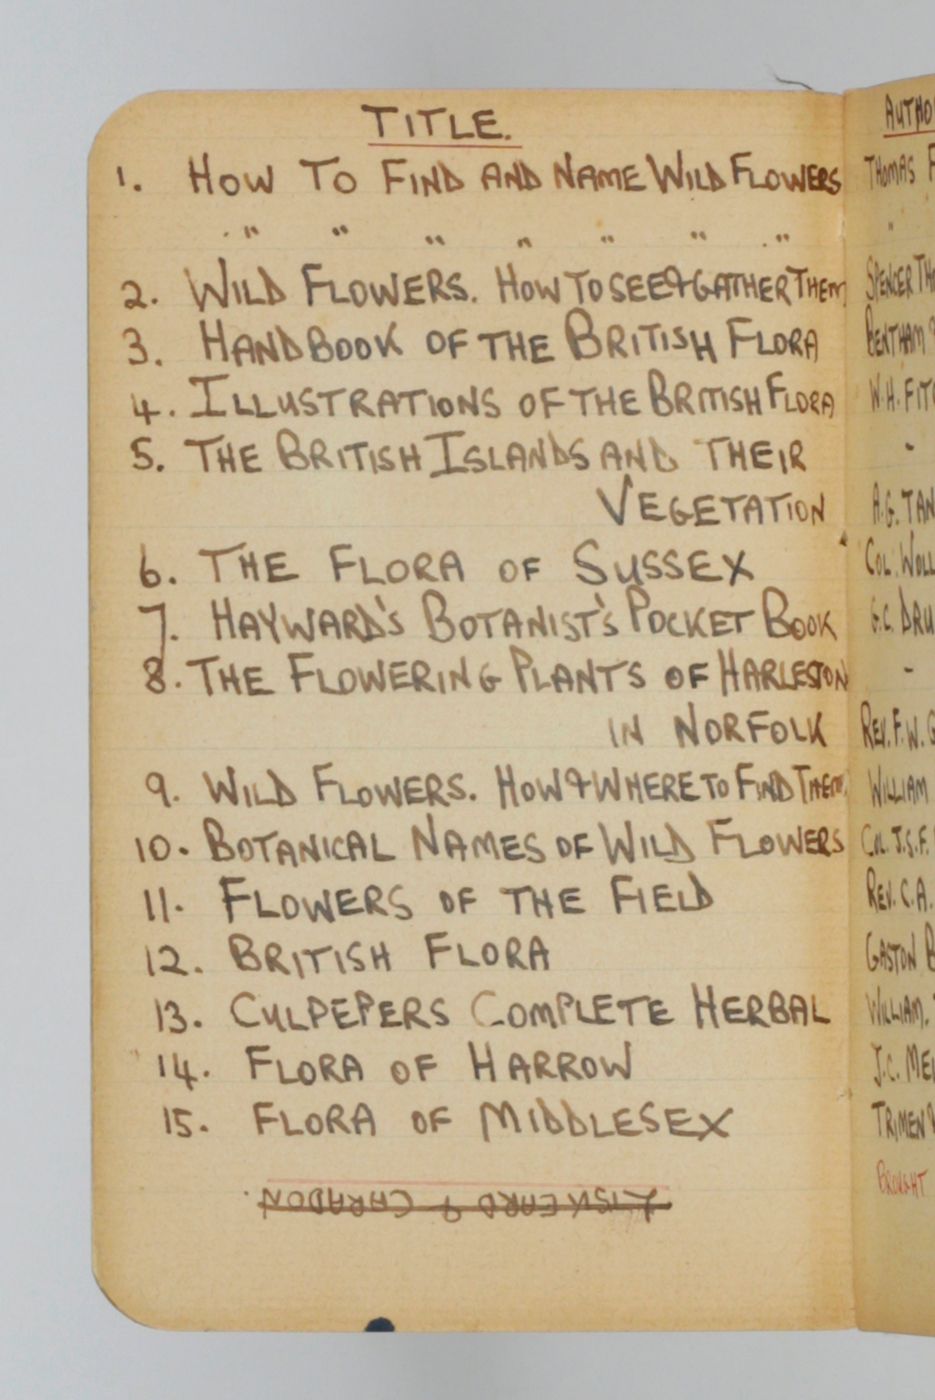 TITLE.
1. HOW TO FIND AND NAME WILD FLOWERS
" " " " " " "
2. WILD FLOWERS. HOW TO SEE & GATHER THEM
3. HANDBOOK OF THE BRITISH FLORA
4. ILLUSTRATIONS OF THE BRITISH FLORA
5. THE BRITISH ISLANDS AND THEIR
VEGETATION
6. THE FLORA OF SUSSEX
7. HAYWARD'S BOTANIST'S POCKET BOOK
8. THE FLOWERING PLANTS OF HARLESTON
IN NORFOLK
9. WILD FLOWERS. HOW & WHERE TO FIND THEM.
10. BOTANICAL NAMES OF WILD FLOWERS
11. FLOWERS OF THE FIELD
12. BRITISH FLORA
13. CULPEPERS COMPLETE HERBAL
14. FLORA OF HARROW
15. FLORA OF MIDDLESEX
LISKEARD & CARADON.
AUTHO
THOMAS F
"
SPENCER TH
BENTHAM
W.H. FITC
-
A.G. TAN
COL. WOLL
G.C. DRU
-
REV. F.W. G
WILLIAM
COL. J.S.F.
REV. C.A.
GASTON B
WILLIAM.
J.C. MEL
TRIMEN
BROUGHT